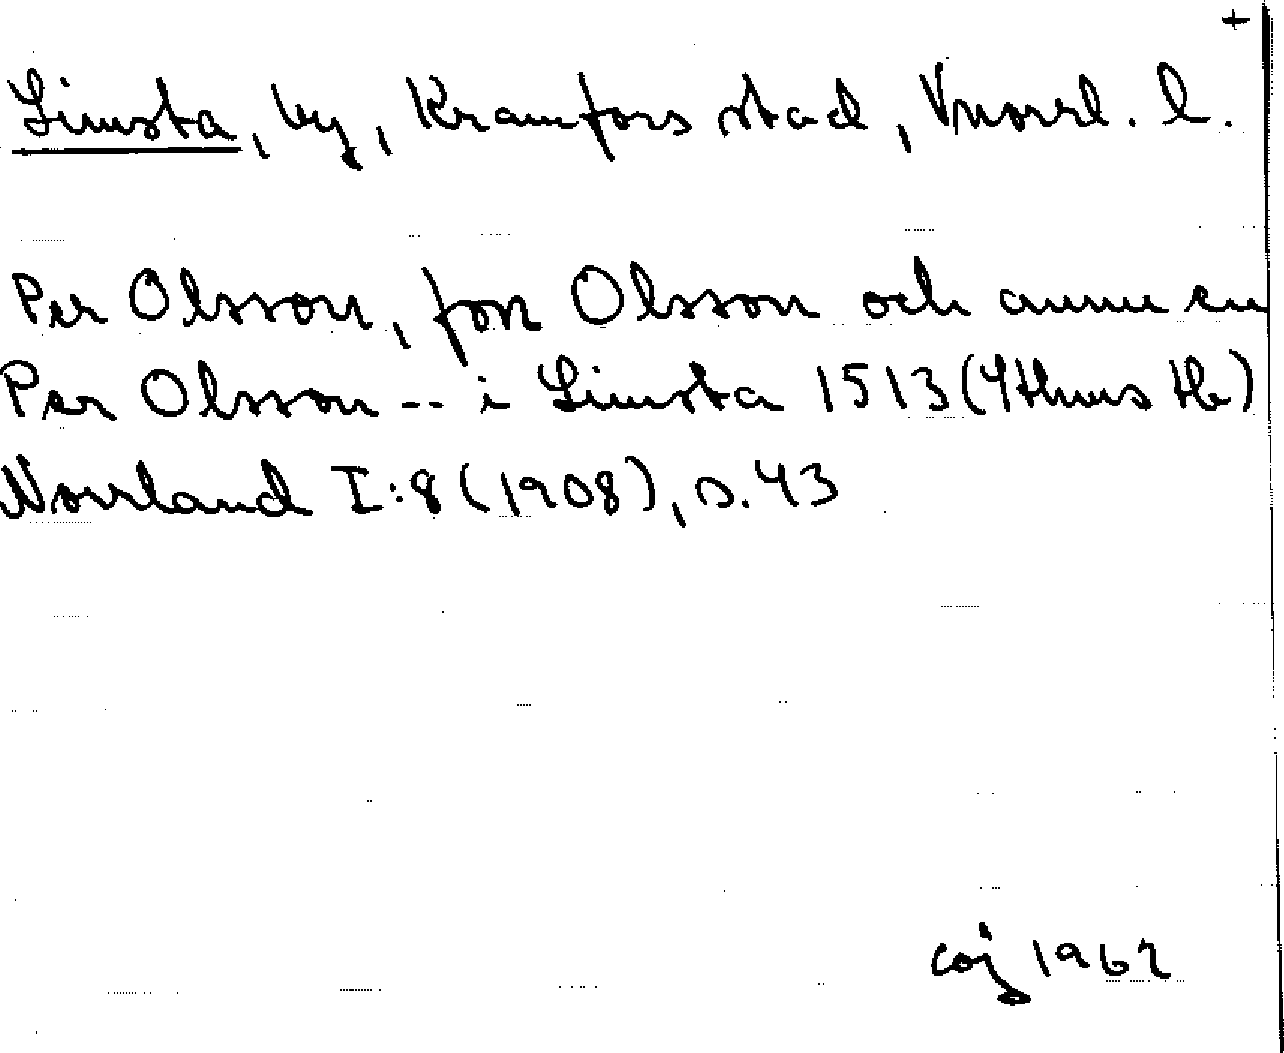 +
Limsta, by, Kramfors stad, Vnorrl. l.
Per Olsson, Jon Olsson och annu en
Per Olsson -- i Limsta 1513 (4thus Hb)
Norrland I:8 (1908), s. 43
coj 1962